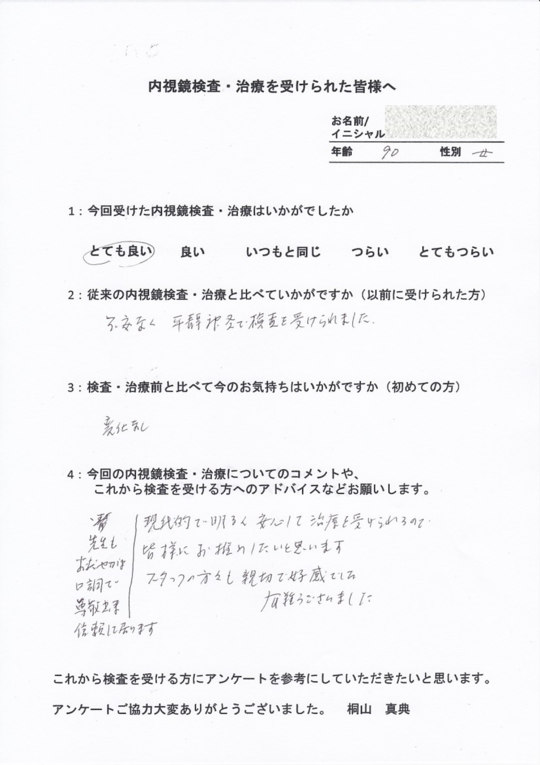 内視鏡検査・治療を受けられた皆様へ
お名前/
イニシャル
年齢 90 性別 女
1:今回受けた内視鏡検査・治療はいかがでしたか
とても良い 良い いつもと同じ つらい とてもつらい
2:従来の内視鏡検査・治療と比べていかがですか(以前に受けられた方)
不安なく 平静神圣で検査を受けられました.
3:検査・治療前と比べて今のお気持ちはいかがですか(初めての方)
変化乱し
4:今回の内視鏡検査・治療についてのコメントや、
これから検査を受ける方へのアドバイスなどお願いします。
現代的で明るく 安心して 治療を受けられるので
皆様に お推めしたいと思います
スタッフの方々も 親切で好感でした
有難うございました
先生も
おだやかな
口調で
尊敬出来
信頼して居ります
これから検査を受ける方にアンケートを参考にしていただきたいと思います。
アンケートご協力大変ありがとうございました。 桐山 真典